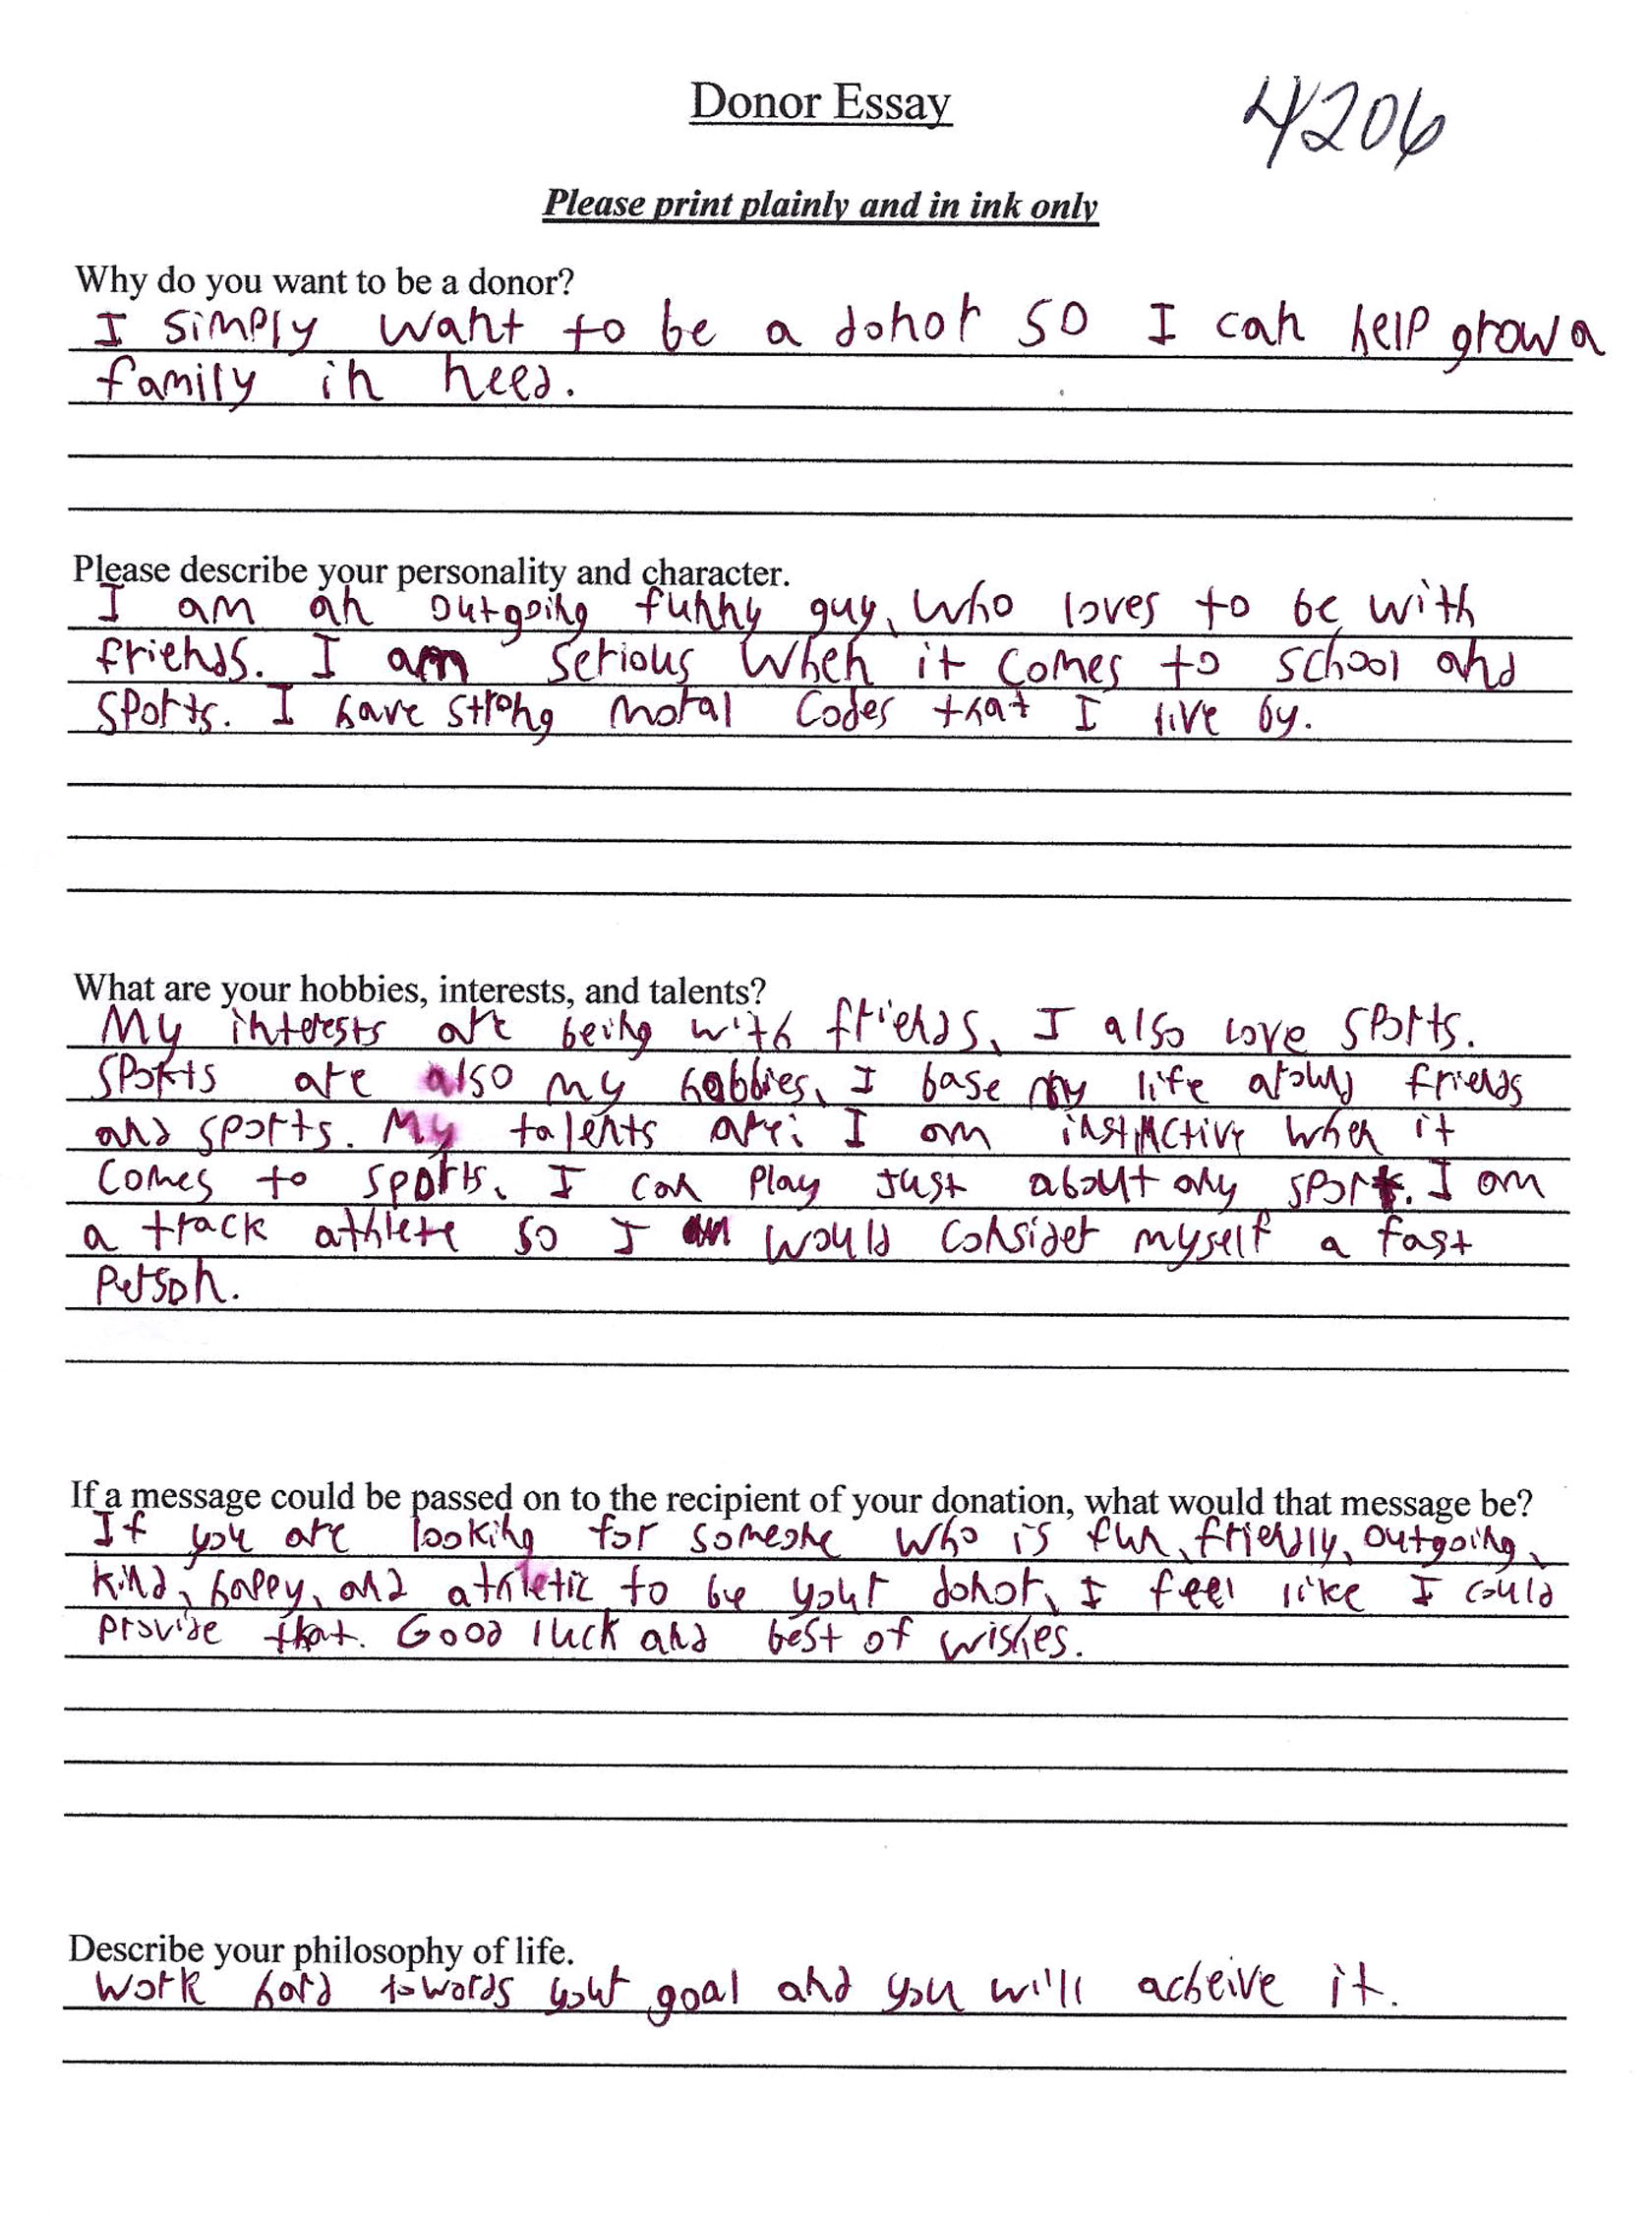 Donor Essay
4206
Please print plainly and in ink only
Why do you want to be a donor?
I simply want to be a donor so I can help grow a
family in need.
Please describe your personality and character.
I am an outgoing funny guy, who loves to be with
friends. I am serious when it comes to school and
sports. I have strong moral codes that I live by.
What are your hobbies, interests, and talents?
My interests are being with friends, I also love sports.
Sports are also my hobbies, I base my life around friends
and sports. My talents are: I am instinctive when it
comes to sports, I can play just about any sport. I am
a track athlete so I would consider myself a fast
person.
If a message could be passed on to the recipient of your donation, what would that message be?
If you are looking for someone who is fun, friendly, outgoing,
kind, happy, and athletic to be your donor, I feel like I could
provide that. Good luck and best of wishes.
Describe your philosophy of life.
Work hard towards your goal and you will acheive it.